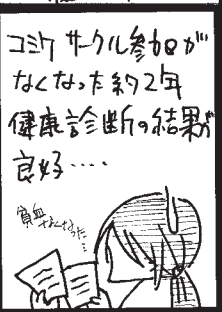 コミケサークル参加が
なくなった約2年
健康診断の結果が
良好‥‥
貧血なくなった…